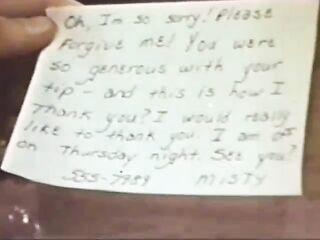 Oh, I'm so sorry! Please
Forgive me! You were
so generous with your
tip - and this is how I
Thank you? I would really
like to thank you. I am off
on Thursday night. See you?
555-7989 MISTY